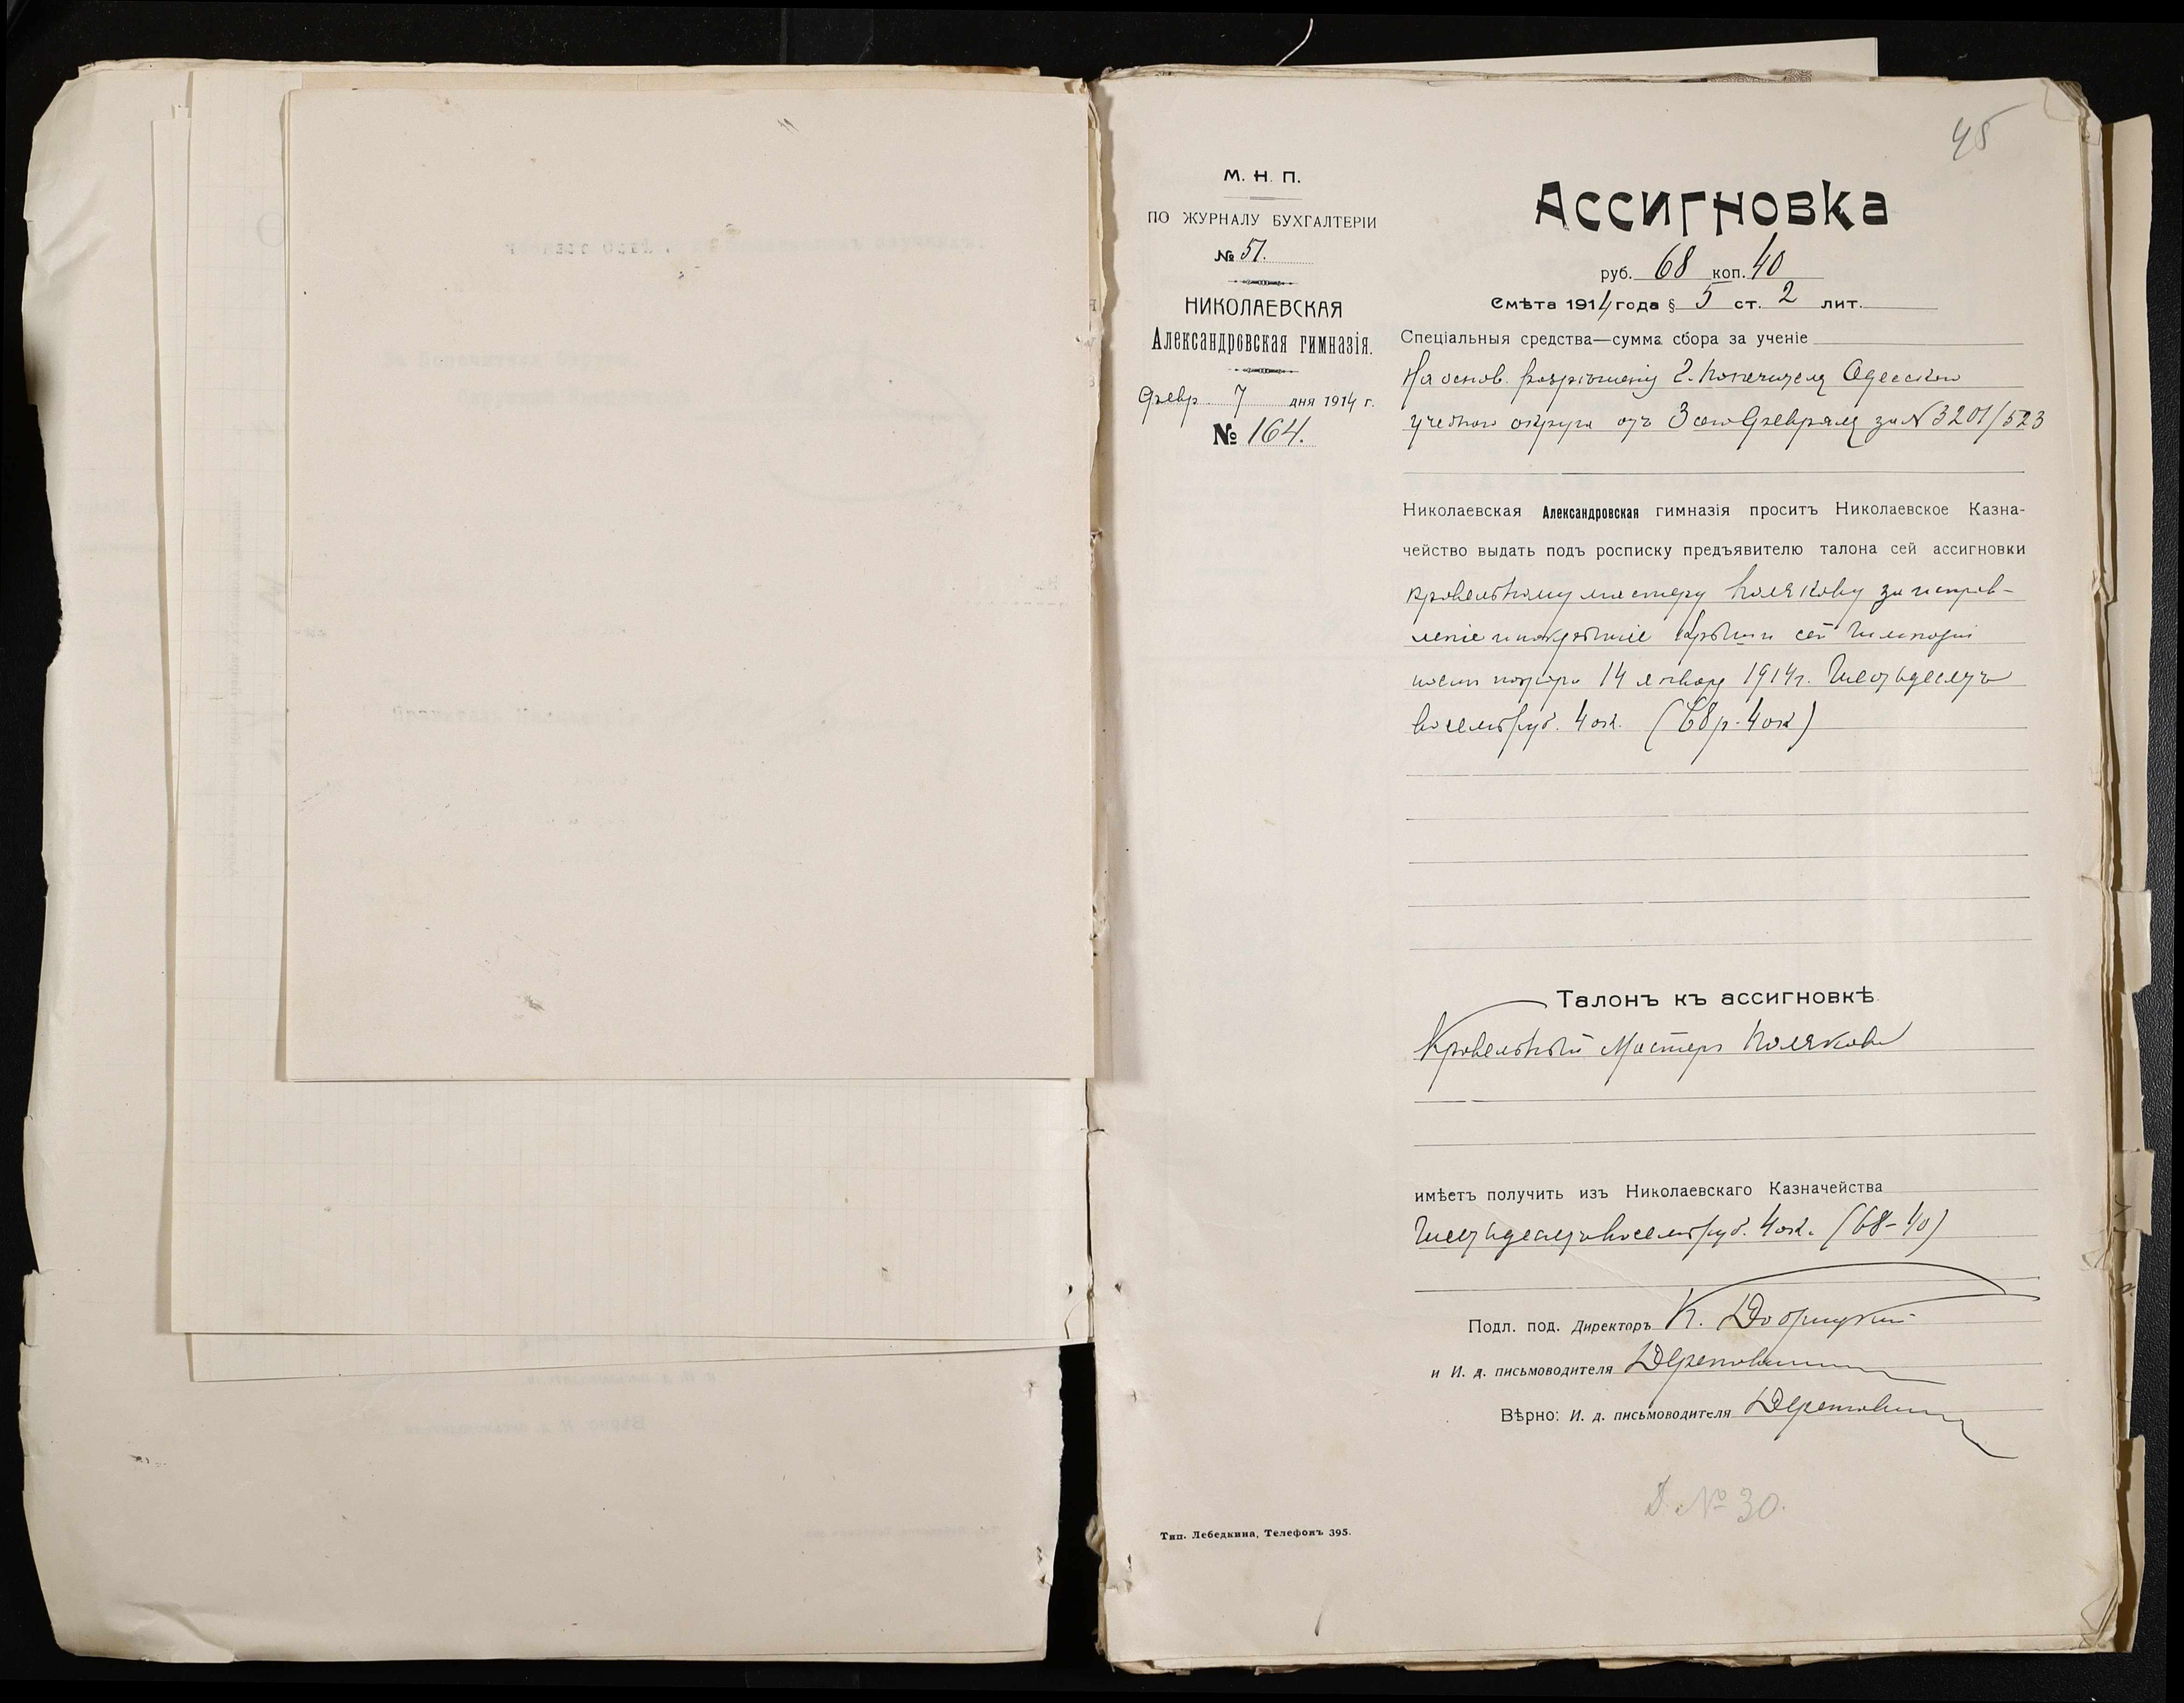 45
М. Н. П.
ПО ЖУРНАЛУ БУХГАЛТЕРІИ
№ 51.
НИКОЛАЕВСКАЯ
Александровская гимназія.
Февр. 7 дня 1914 г.
№ 164.
Ассигновка
руб. 68 коп. 40
Смѣта 1914 года § 5 ст. 2 лит.
Спеціальныя средства—сумма сбора за ученіе
На основ. разрѣшенія г. Попечителя Одесскаго
учебнаго округа отъ 3 сего Февраля за № 3201/523
Николаевская Александровская гимназія проситъ Николаевское Казна-
чейство выдать подъ росписку предъявителю талона сей ассигновки
кровельному мастеру Полякову за исправ-
леніе крыши сей Гимназіи
послѣ пожара 14 января 1914 г. Шестьдесятъ
восемь руб. 40 к. (68 р. 40 к)
Талонъ къ ассигновкѣ
Кровельный Мастеръ Поляковъ
имѣетъ получить изъ Николаевскаго Казначейства
Шестьдесятъ восемь руб. 40 к. (68-40)
Подл. под. Директоръ
и И. д. письмоводителя
Вѣрно: И. д. письмоводителя
№ 30.
Тип. Лебедкина, Телефонъ 395.